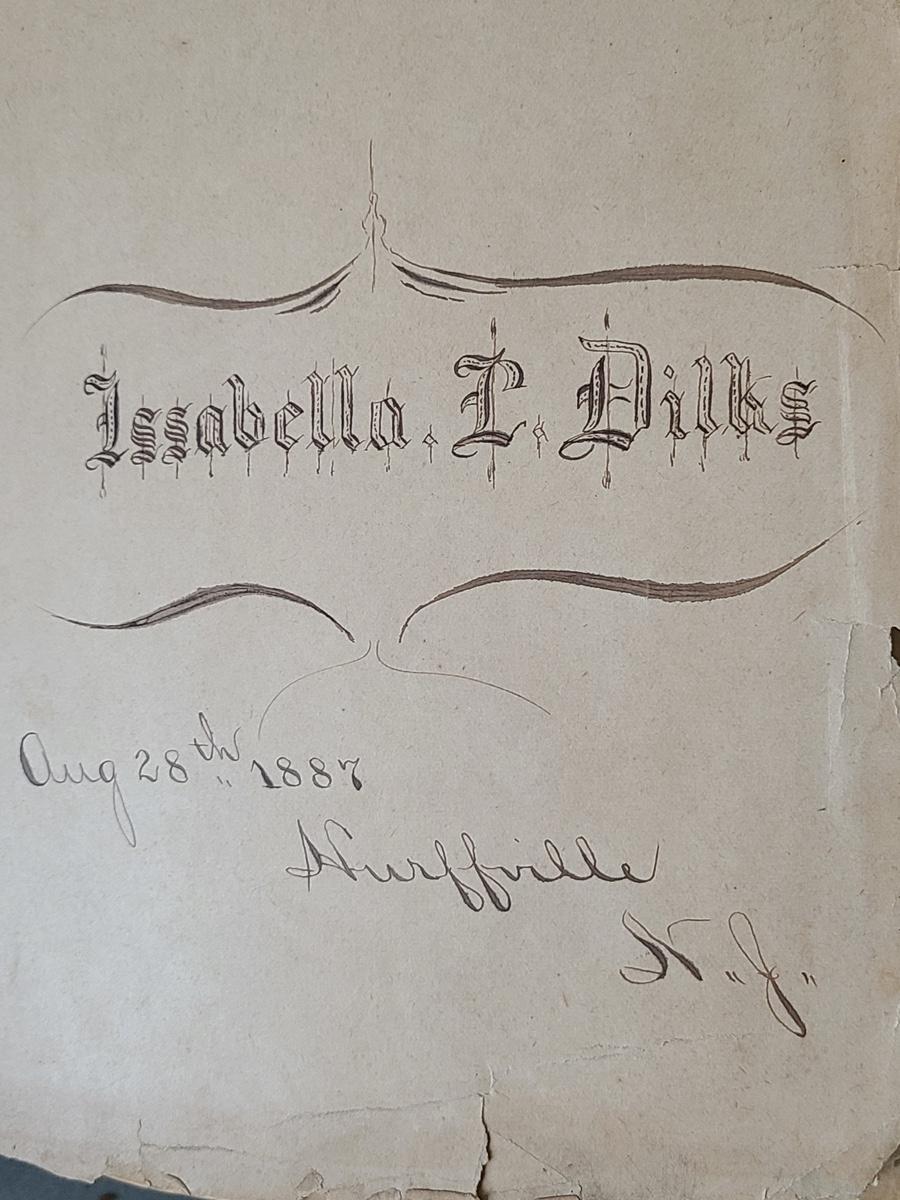 Issabella. L. Dilks
Aug 28th„ 1887
Hurffville
N„J„